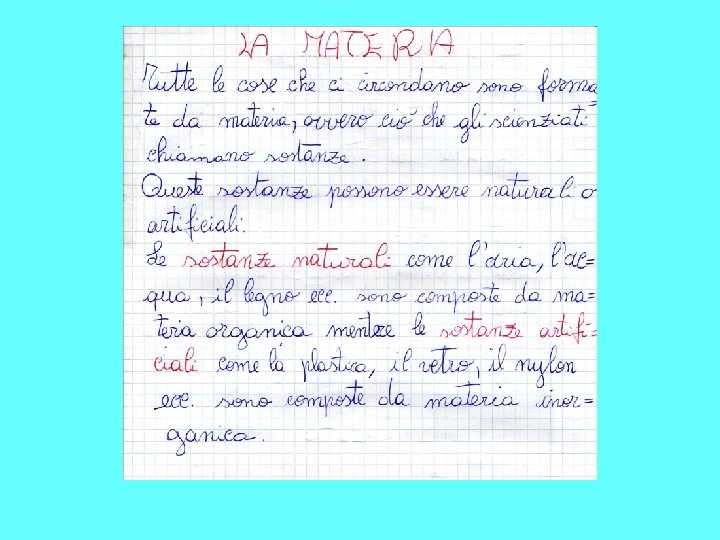 LA MATERIA
Tutte le cose che ci circondano sono forma=
te da materia, ovvero ciò che gli scienziati
chiamano sostanze.
Queste sostanze possono essere naturali o
artificiali.
Le sostanze naturali come l'aria, l'ac=
qua, il legno ecc. sono composte da ma=
teria organica mentre le sostanze artifi=
ciali come la plastica, il vetro, il nylon
ecc. sono composte da materia inor=
ganica.